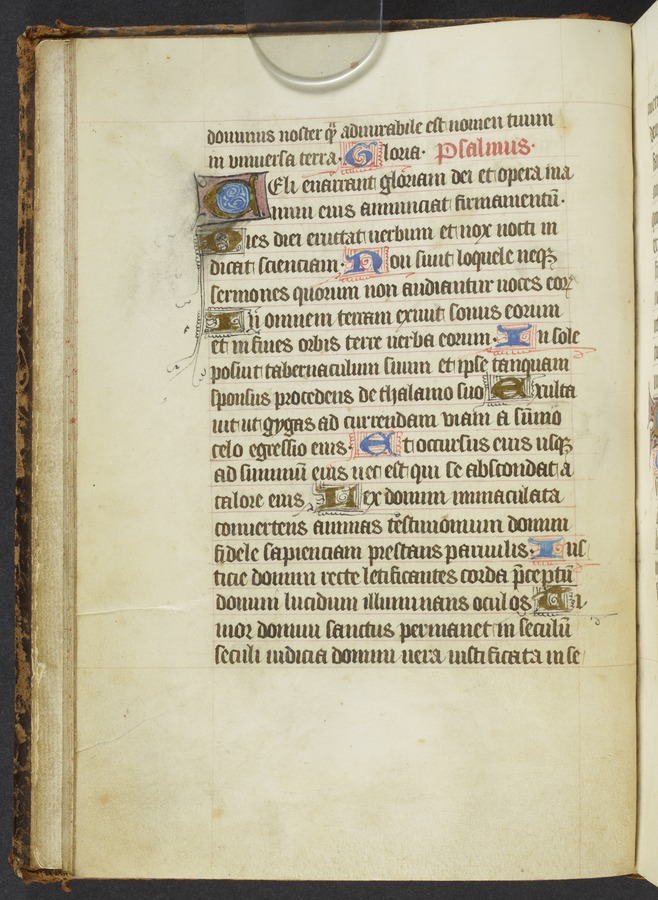 dominus noster q̄ admirabile est nomen tuum
in uniuersa terra. Gloria. Psalmus.
Celi enarrant gloriam dei et opera ma
nuum eius annunciat firmamentū.
Dies diei eructat uerbum et nox nocti in
dicat scienciam. Non sunt loquele neqꝫ
sermones quorum non audiantur uoces eoꝝ
In omnem terram exiuit sonus eorum
et in fines orbis terre uerba eorum. In sole
posiuit tabernaculum suum et ipse tanquam
sponsus procedens de thalamo suo Exulta
uit ut gygas ad currendam uiam a sūmo
celo egressio eius. Et occursus eius usqꝫ
ad summū eius nec est qui se abscondat a
calore eius Lex domini immaculata
conuertens animas testimonium domini
fidele sapienciam prestans paruulis. Ius
ticie domini recte letificantes corda p̄ceptū
domini lucidum illuminans oculos Ti
mor domini sanctus permanet in seculū
seculi iudicia domini uera iustificata in se